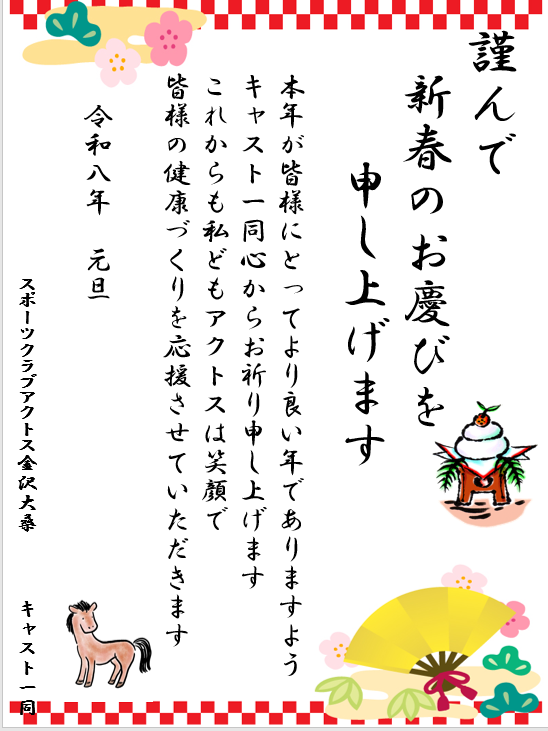 謹んで
新春のお慶びを
申し上げます
本年が皆様にとってより良い年でありますよう
キャスト一同心からお祈り申し上げます
これからも私どもアクトスは笑顔で
皆様の健康づくりを応援させていただきます
令和八年　元旦
スポーツクラブアクトス金沢大桑　キャスト一同